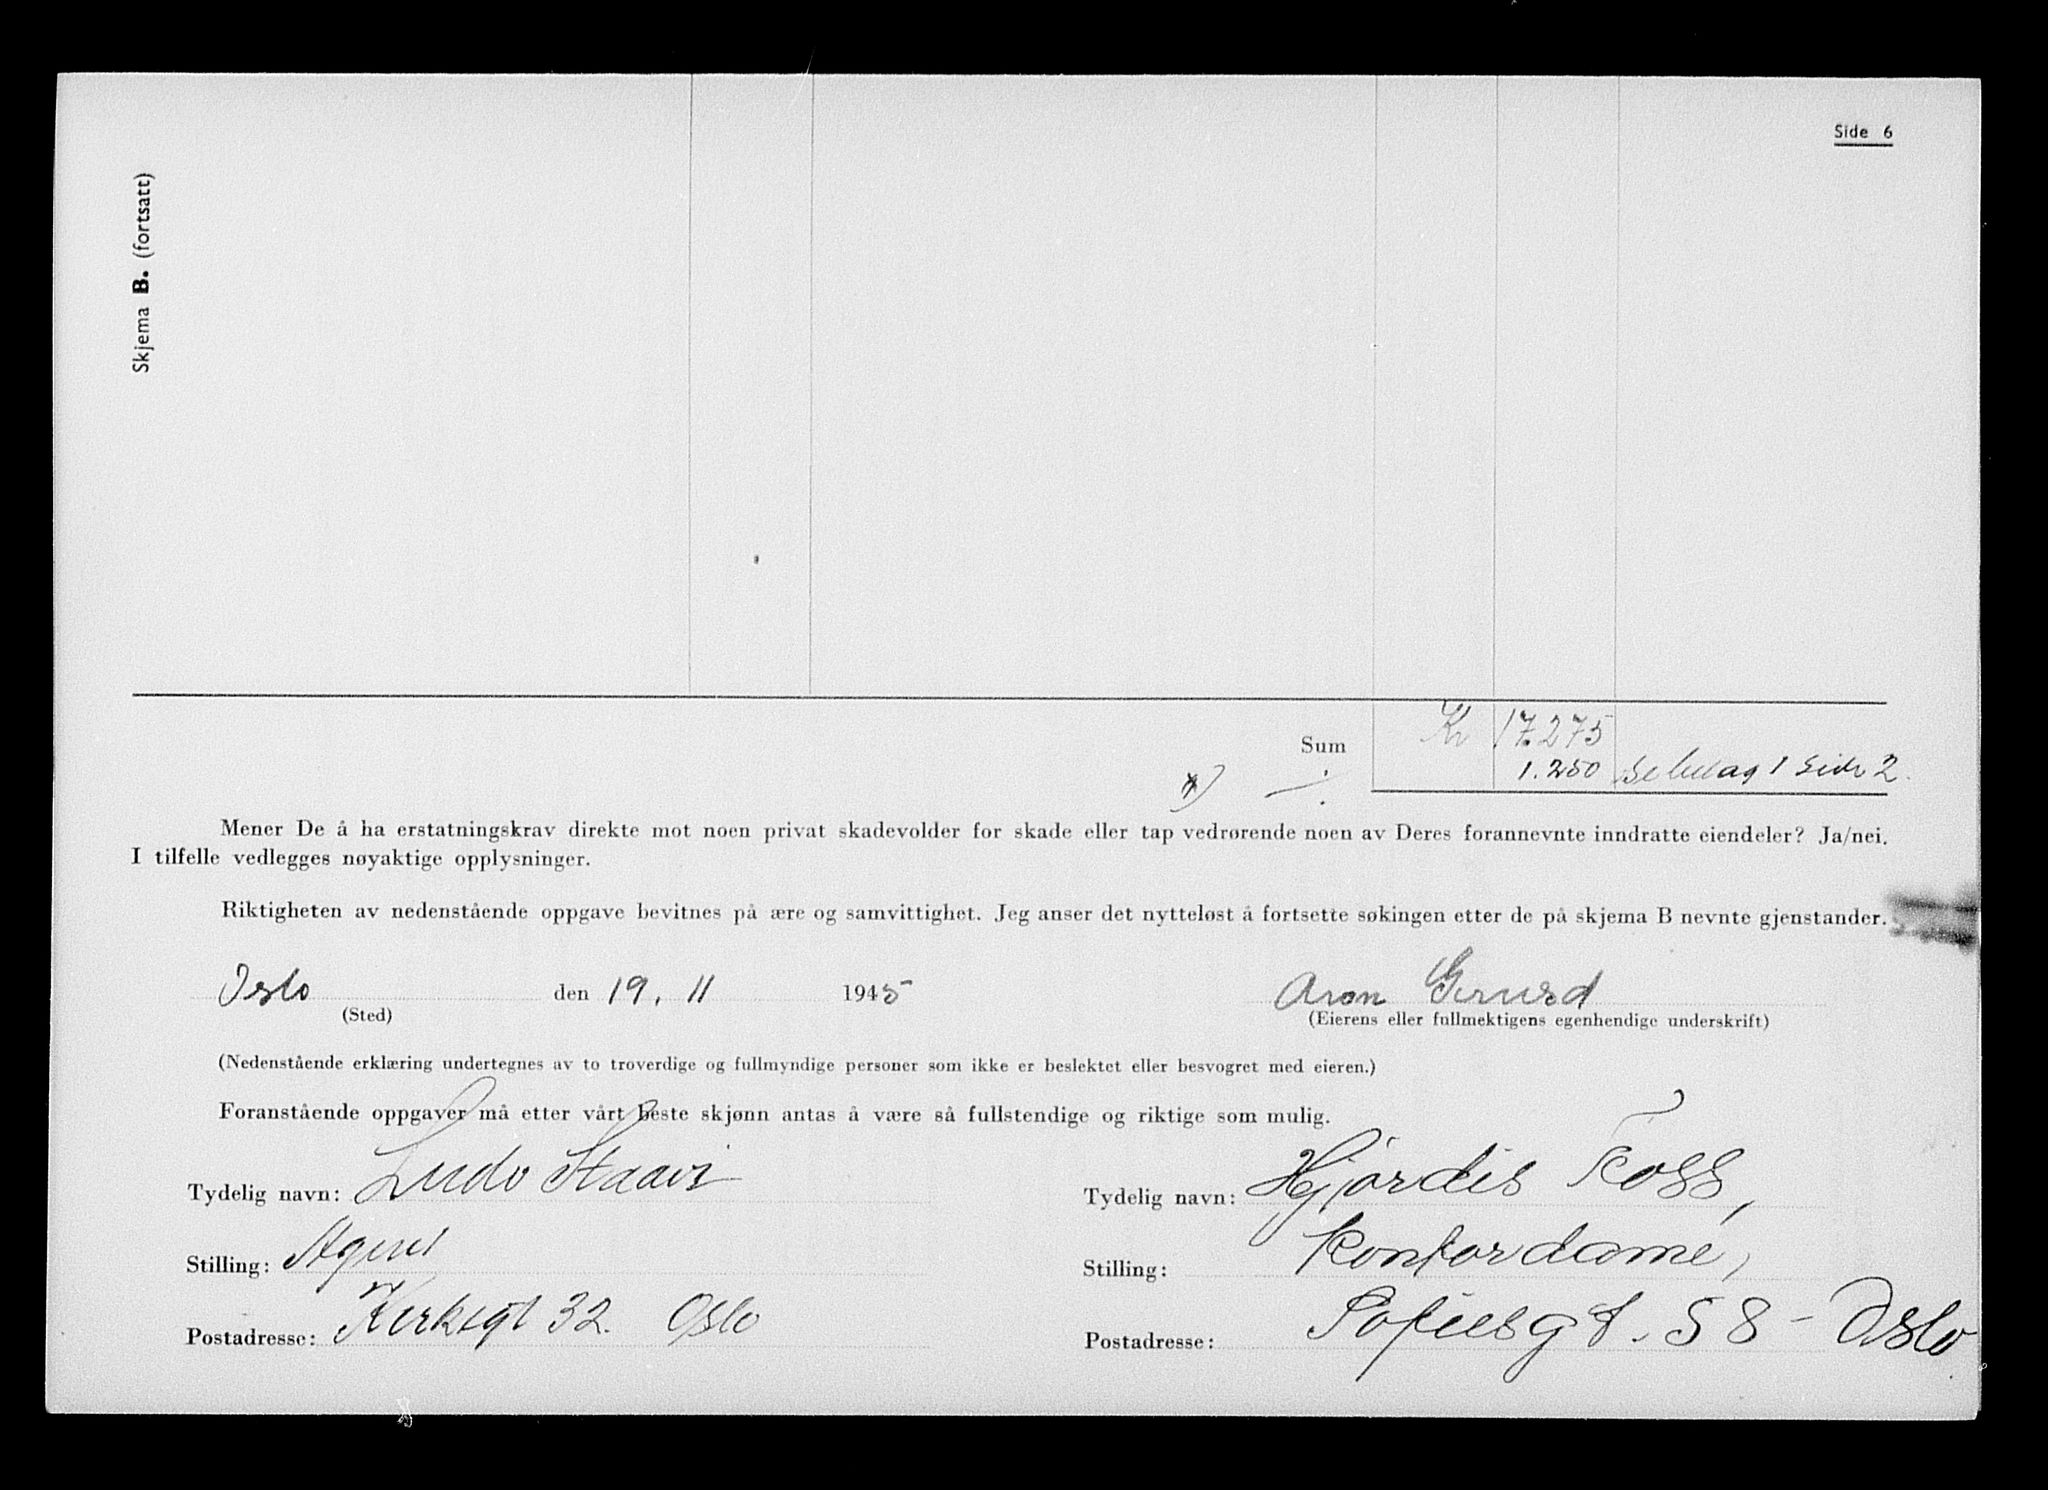 Side 6
Skjema B. (fortsatt)
Sum Kr 17.275
*) ./. 1.250 se bilag 1 side 2.
Mener De å ha erstatningskrav direkte mot noen privat skadevolder for skade eller tap vedrørende noen av Deres forannevnte inndratte eiendeler? Ja/nei.
I tilfelle vedlegges nøyaktige opplysninger.
Riktigheten av nedenstående oppgave bevitnes på ære og samvittighet. Jeg anser det nytteløst å fortsette søkingen etter de på skjema B nevnte gjenstander.
Oslo den 19. 11 1945 Aron
(Sted) (Eierens eller fullmektigens egenhendige underskrift)
(Nedenstående erklæring undertegnes av to troverdige og fullmyndige personer som ikke er beslektet eller besvogret med eieren.)
Foranstående oppgaver må etter vårt beste skjønn antas å være så fullstendige og riktige som mulig.
Tydelig navn: Ludv Staavi Tydelig navn: Hjørdis Foss,
Stilling: Agent Stilling: Kontordame,
Postadresse: Kirkegt 32. Oslo Postadresse: Sofiesgt. 58 - Oslo